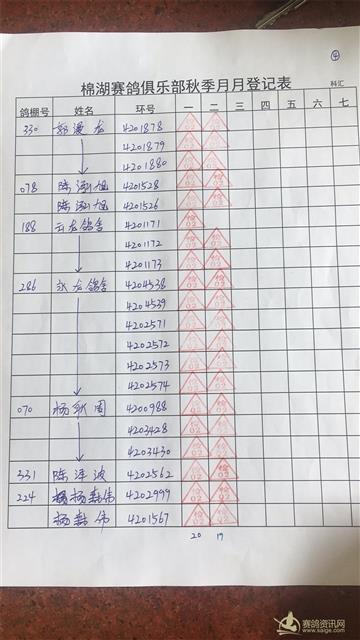 ④
棉湖赛鸽俱乐部秋季月月登记表 科汇
鸽棚号 姓名 环号 一 二 三 四 五 六 七
330 4201878
4201879
4201880
078 陈 旭 4201528
陈 旭 4201526
188 龙鸽舍 4201171
4201172
4201173
286 龙鸽舍 4204538
4204539
4202571
4202572
4202573
4202574
070 杨 周 4200988
4203428
4203430
331 陈泽波 4202562
224 杨 伟 4202999
杨 伟 4201567
20 19
赛鸽资讯网
www.saige.com